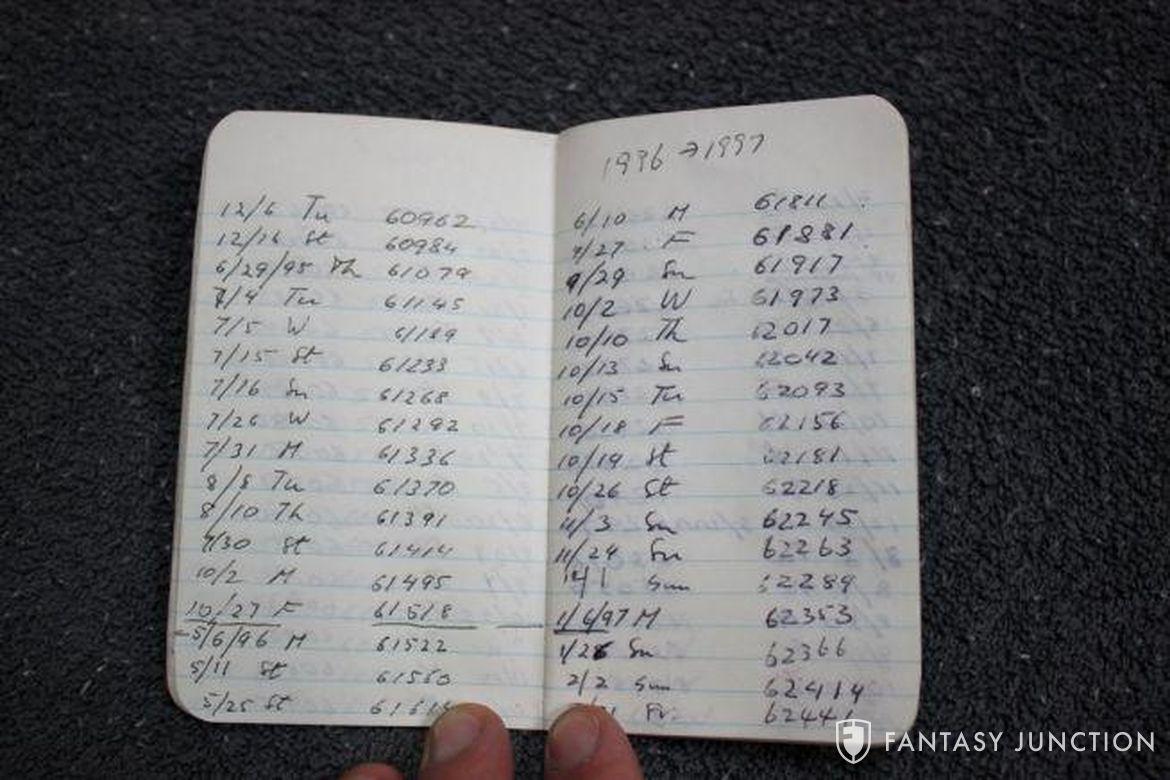 12/6 Tu 60962
12/16 St 60984
6/29/95 Th 61079
7/4 Tu 61145
7/5 W 61189
7/15 St 61233
7/16 Su 61268
7/26 W 61292
7/31 M 61336
8/8 Tu 61370
8/10 Th 61391
9/30 St 61414
10/2 M 61495
10/27 F 61518
5/6/96 M 61522
5/11 St 61550
5/25 St
1996 → 1997
6/10 M 61811
9/27 F 61881
9/29 Su 61917
10/2 W 61973
10/10 Th 62017
10/13 Su 62042
10/15 Tu 62093
10/18 F 62156
10/19 St 62181
10/26 St 62218
11/3 Su 62245
11/24 Su 62263
12/1 Sun 62289
1/6/97 M 62353
1/26 Su 62366
2/2 Sun 62414
Fri 62441
FANTASY JUNCTION